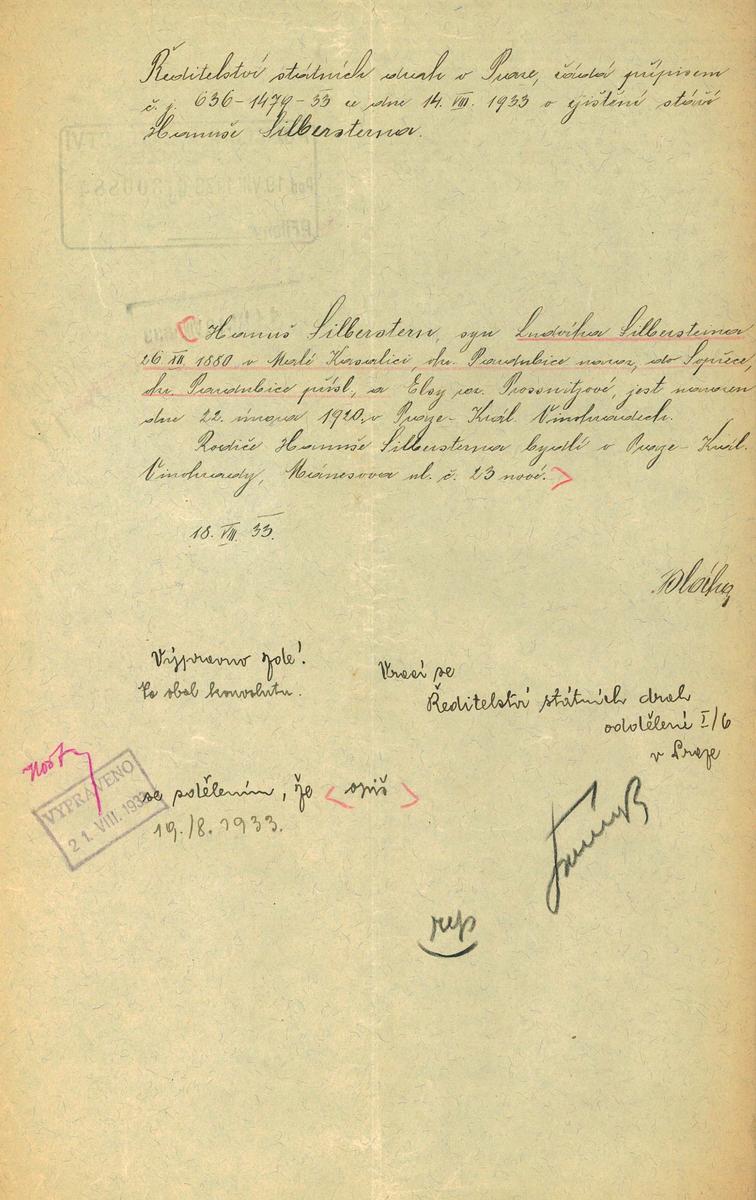 Ředitelství státních drah v Praze, žádá přípisem
č. j. 636-1479-33 ze dne 14. VIII. 1933 o zjištění stáří
Hanuše Silbersterna.
Hanuš Silberstern, syn Ludvíka Silbersterna
26. XII. 1880 v Malé Kasalici, okr. Pardubice naroz., do Sopřece,
okr. Pardubice přísl., a Elsy roz. Prossnitzové, jest narozen
dne 22. února 1920 v Praze-Král. Vinohradech.
Rodiče Hanuše Silbersterna bydlí v Praze-Král.
Vinohrady, Mánesova ul. č. 23 nové.
18. VIII. 33.
Bláha
Výpravno zde!
Vrací se
Co obal konvolutu.
Ředitelství státních drah
oddělení I/6
v Praze
VYPRAVENO
21. VIII. 193
se sdělením, že < opis >
19./8. 1933.